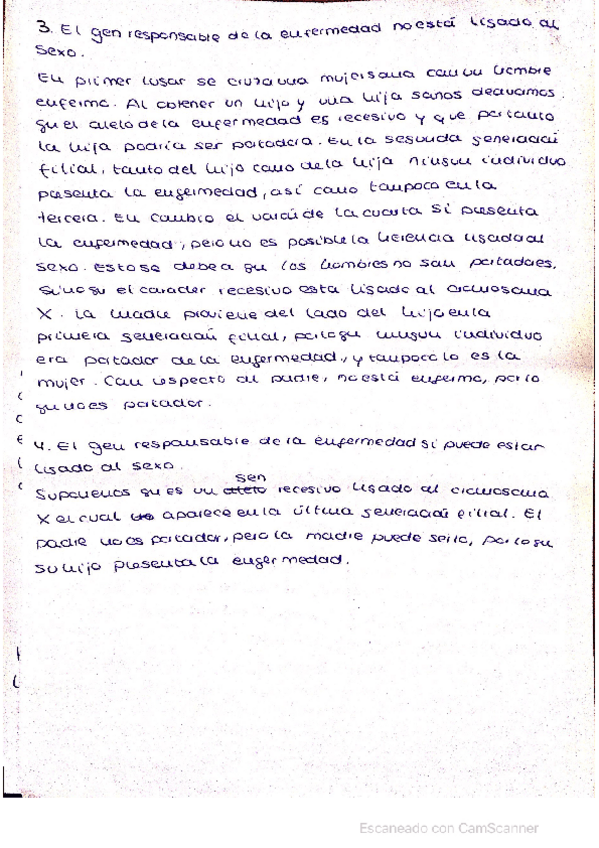 3. El gen responsable de la enfermedad no está ligado al
sexo.
En primer lugar se cruza una mujer sana con un hombre
enfermo. Al obtener un hijo y una hija sanos deducimos
que el alelo de la enfermedad es recesivo y que por tanto
la hija podría ser portadora. En la segunda generación
filial, tanto del hijo como de la hija ningun individuo
presenta la enfermedad, así como tampoco en la
tercera. En cambio el varón de la cuarta si presenta
la enfermedad, pero no es posible la herencia ligada al
sexo. Esto se debe a que los hombres no son portadores,
si no que el caracter recesivo esta ligado al cromosoma
X. La madre proviene del lado del hijo en la
primera generación filial, por lo que ningun individuo
era portador de la enfermedad, y tampoco lo es la
mujer. Con respecto al padre, no está enfermo, por lo
que no es portador.
4. El gen responsable de la enfermedad si puede estar
ligado al sexo.
gen
Suponemos que es un alelo recesivo ligado al cromosoma
X el cual aparece en la última generación filial. El
padre no es portador, pero la madre puede serlo, por lo que
su hijo presenta la enfermedad.
Escaneado con CamScanner